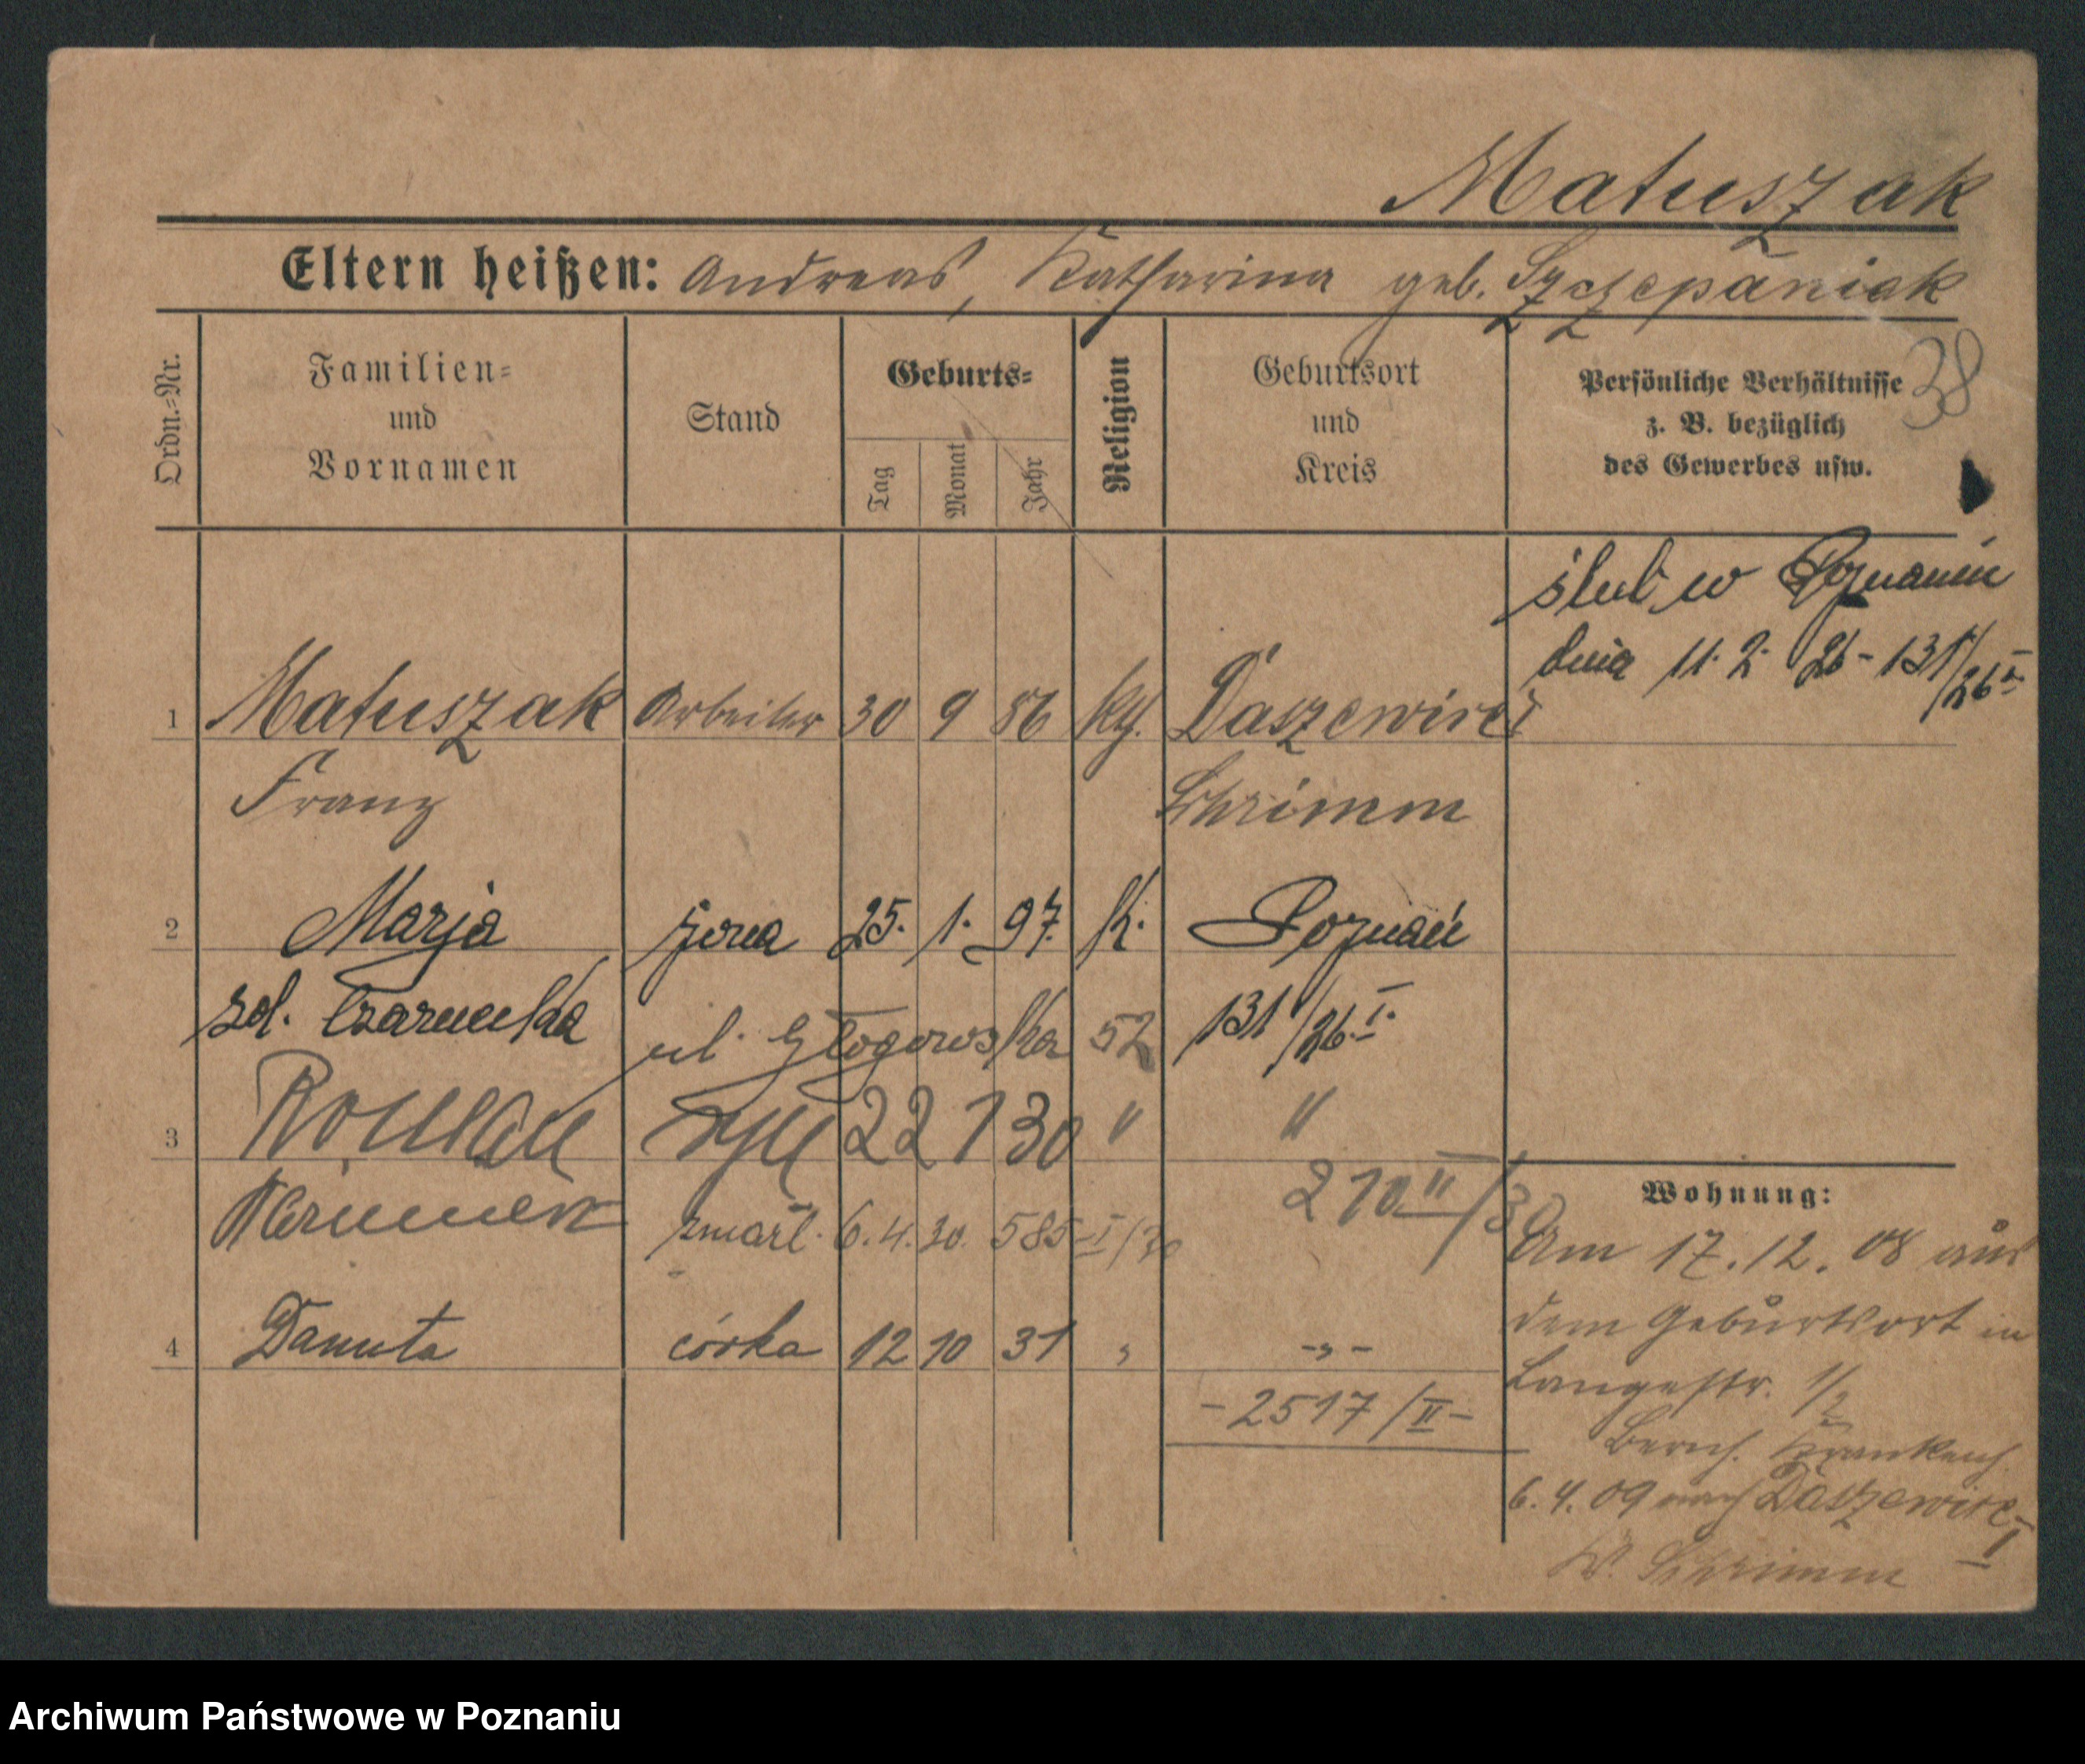 Matuszak
Eltern heißen: Andreas, Katharina geb. Szczepaniak
38
Ordn.-Nr.
Familien-
und
Vornamen
Stand
Geburts-
Tag
Monat
Jahr
Religion
Geburtsort
und
Kreis
Persönliche Verhältnisse
z. B. bezüglich
des Gewerbes usw.
ślub w Poznaniu
dnia 11. 2. 26 - 131/26
1 Matuszak Arbeiter 30 9 86 kth. Daszewice
Franz Schrimm
2 Marja żona 25. 1. 97. k. Poznań
zd. ul. Głogowska 52 131/26 I.
3 Roman syn 22 1 30 " "
210 II/30
zmarł. 6. 4. 30. 585 I/30
4 Danuta córka 12 10 31 " -"-
- 2517/II -
Wohnung:
Am 17. 12. 08 aus
dem Geburtsort in
Langestr. 1/2
Krankenh.
6. 4. 09 nach Daszewice
Kr. Schrimm
Archiwum Państwowe w Poznaniu